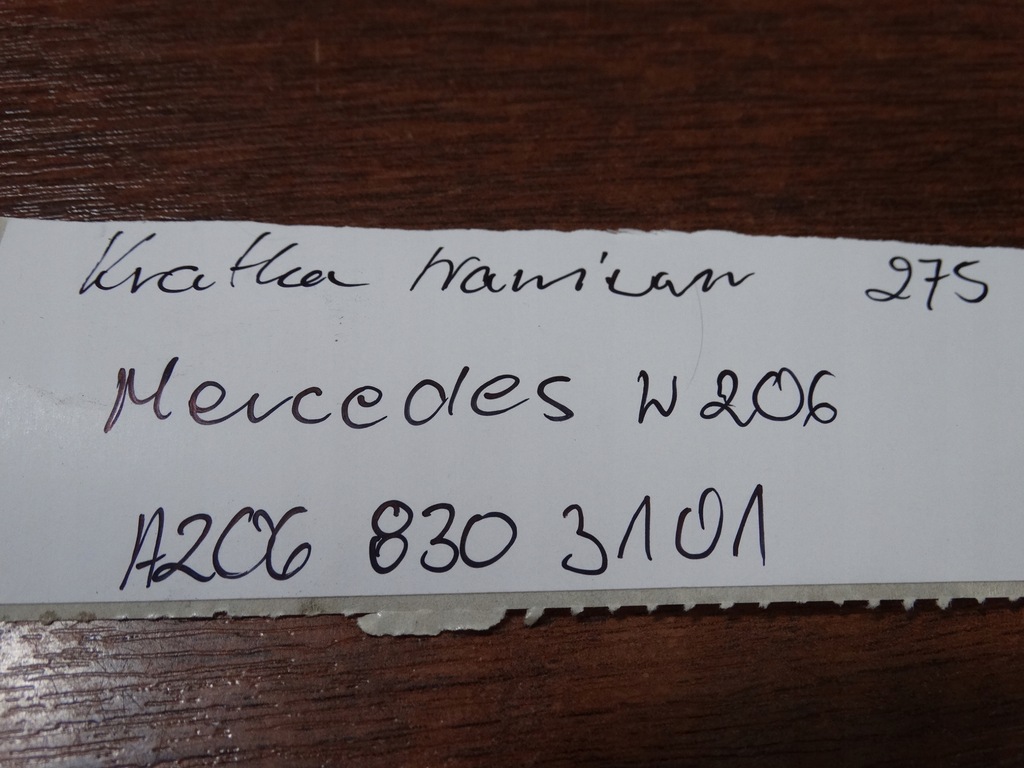 Kratka 275
Mercedes W206
A206 830 3101